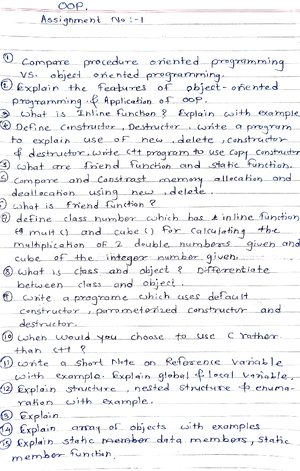 OOP.
Assignment No :- 1
① Compare procedure oriented programming
VS. object oriented programming.
② Explain the Features of object-oriented
programming & Application of OOP.
③ What is Inline function? Explain with example
④ Define Constructor, Destructor. write a program
to explain use of new, delete, constructor
& destructor. write C++ program to use Copy Constructor
⑤ What are friend function and static function.
⑥ Compare and Constrast memory allocation and
deallocation using new, delete.
What is Friend function?
⑦ define class number which has 2 inline function
mult() and cube() For calculating the
multiplication of 2 double numbers given and
cube of the integer number given.
⑧ What is class and object? Differentiate
between class and object.
⑨ write a programe which uses default
constructor, parameterized constructor and
destructor.
⑩ When would you choose to use C rather
than C++?
⑪ write a short Note on Reference variable
with example. Explain global & local variable.
⑫ Explain structure, nested structure & enume-
ration with example.
⑬ Explain
⑭ Explain array of objects with examples
⑮ Explain static member data members, static
member function.